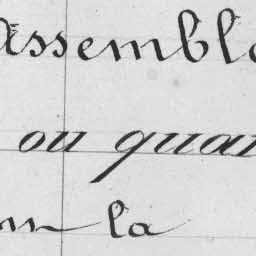 Assemblé
ou quan
la